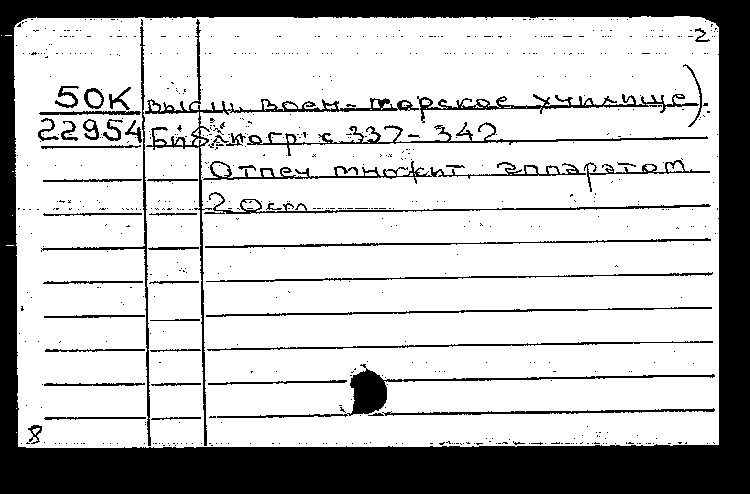 2
50К высш. воен-морское училище).
22954 Библиогр: с 337-342.
Отпеч. множит. аппаратом.
8